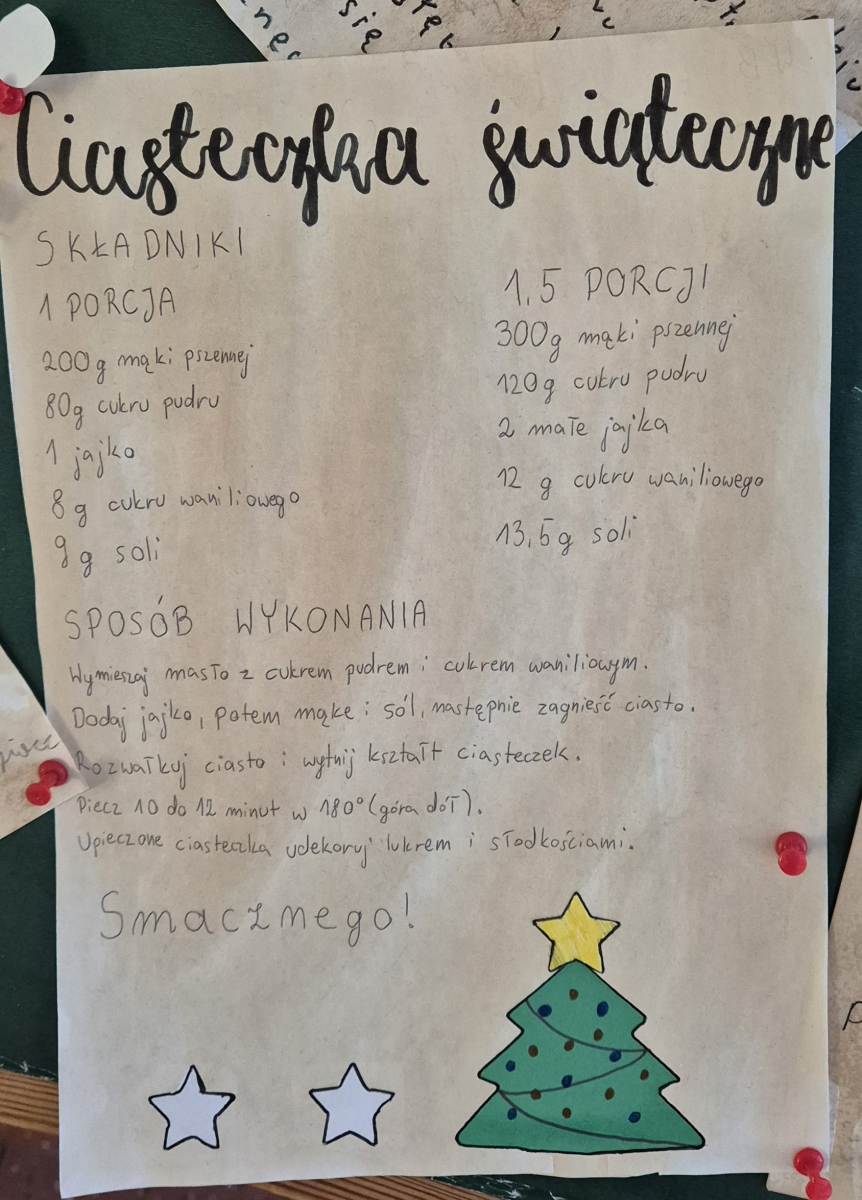 Ciasteczka świąteczne
SKŁADNIKI
1 PORCJA
200g mąki pszennej
80g cukru pudru
1 jajko
8g cukru waniliowego
9g soli
1,5 PORCJI
300g mąki pszennej
120g cukru pudru
2 małe jajka
12 g cukru waniliowego
13,5g soli
SPOSÓB WYKONANIA
Wymieszaj masło z cukrem pudrem i cukrem waniliowym.
Dodaj jajko, potem mąke i sól, następnie zagnieść ciasto.
Rozwałkuj ciasto i wytnij kształt ciasteczek.
Piecz 10 do 12 minut w 180° (góra dół).
Upieczone ciasteczka udekoruj lukrem i słodkościami.
Smacznego!